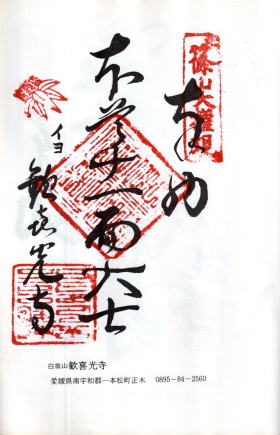 奉納
本尊十一面大士
イヨ
歓喜光寺
白翁山歓喜光寺
愛媛県南宇和郡一本松町正木　0895-84-2560